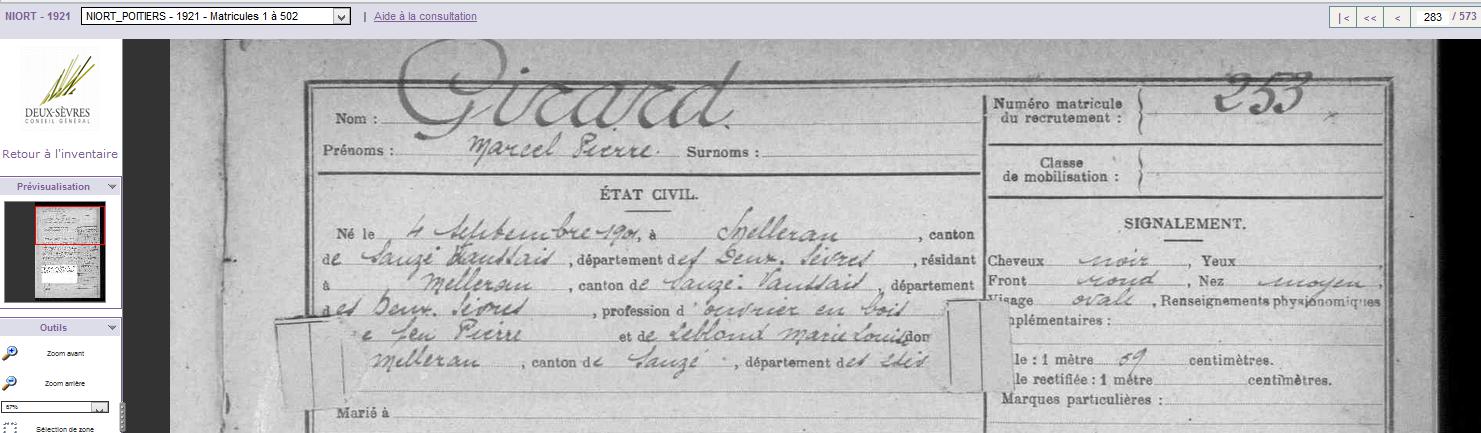 NIORT - 1921 NIORT_POITIERS - 1921 - Matricules 1 à 502 | Aide à la consultation |< << < 283 / 573
DEUX-SÈVRES
CONSEIL GÉNÉRAL
Retour à l'inventaire
Prévisualisation
Outils
Zoom avant
Zoom arrière
67%
Sélection de zone
Nom : Girard.
Prénoms : Marcel Pierre. Surnoms :
ÉTAT CIVIL.
Né le 4 Septembre 1901, à Melleran, canton
de Sauzé Vaussais, département des Deux. Sèvres, résidant
à Melleran, canton de Sauzé. Vaussais, département
des Deux. Sèvres, profession d'ouvrier en bois
feu Pierre et de Leblond Marie Louise dom
Melleran, canton de Sauzé, département des
Marié à
Numéro matricule
du recrutement : 253
Classe
de mobilisation :
SIGNALEMENT.
Cheveux noir, Yeux
Front rond, Nez moyen,
Visage ovale, Renseignements physionomiques
mplémentaires :
le : 1 mètre 69 centimètres.
le rectifiée : 1 mètre centimètres.
Marques particulières :